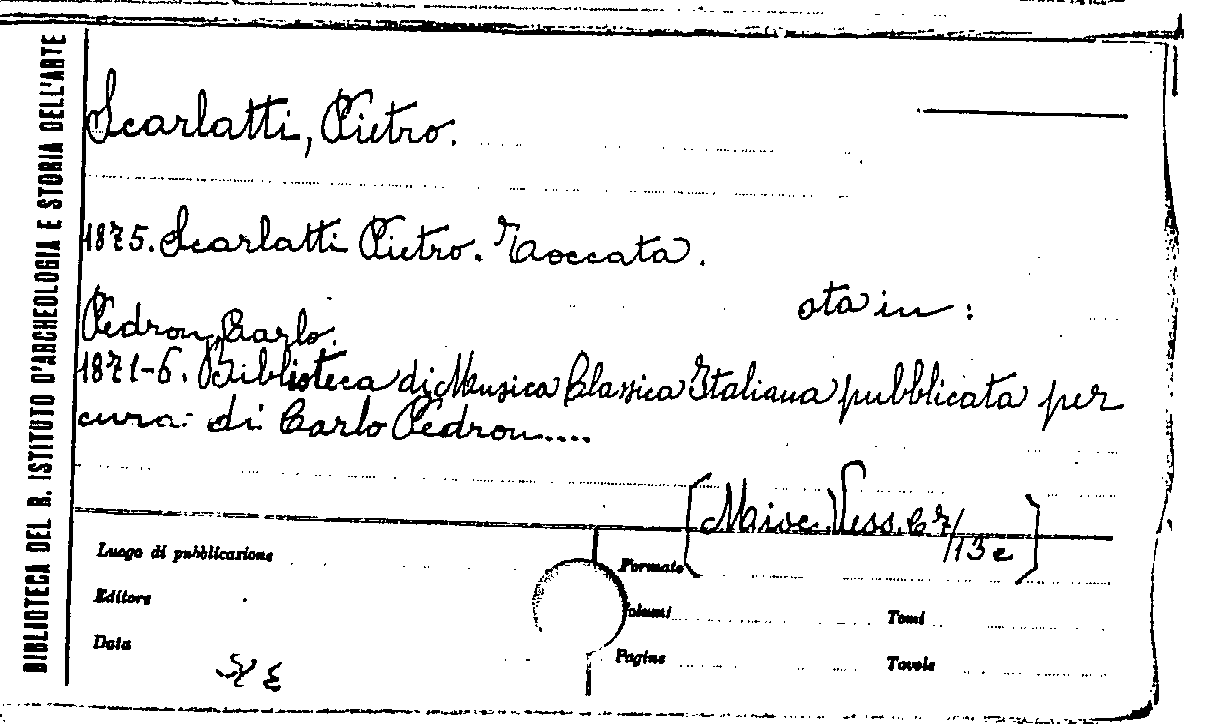 BIBLIOTECA DEL R. ISTITUTO D'ARCHEOLOGIA E STORIA DELL'ARTE
Scarlatti, Pietro.
1875. Scarlatti Pietro. Toccata.
sta in:
Pedron, Carlo.
1871-6. Biblioteca di Musica Classica Italiana pubblicata per
cura: di Carlo Pedron....
Vess. C 7/13 e
Luogo di pubblicazione
Formato
Editore
Volumi
Tomi
Data
Pagine
Tavole